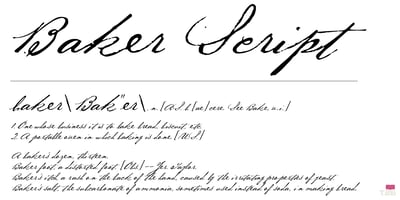 Baker Script
baker\Bak"er\, n. [AS. b[ae]cere. See Bake, v. i.]
1. One whose business it is to bake bread, biscuit, etc.
2. A portable oven in which baking is done. [U.S.]
A baker's dozen, thirteen.
Baker foot, a distorted foot. [Obs.]--Jer. Taylor.
Baker's itch, a rash on the back of the hand, caused by the irritating properties of yeast.
Baker's salt, the subcarbonate of ammonia, sometimes used instead of soda, in making bread.